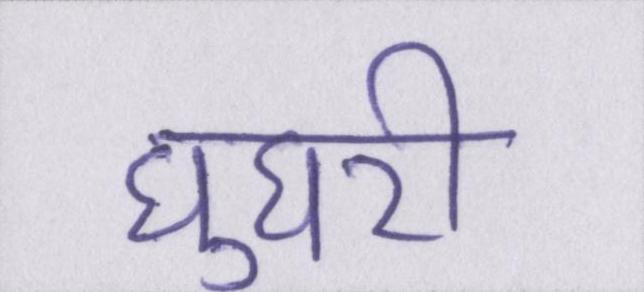 घुघरी